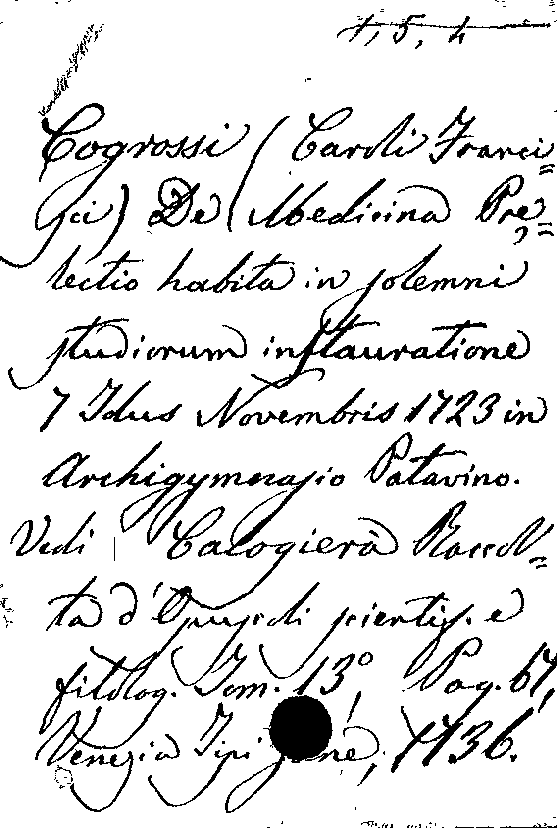 1, 5, 4
Cogrossi (Caroli Franci=
sci) De Medicina Præ=
lectio habita in solemni
studiorum instauratione
7 Idus Novembris 1723 in
Archigymnasio Patavino.
Vedi Calogierà Raccol=
ta d'Opuscoli scientif. e
filolog. Tom. 13º, Pag. 67,
Venezia 1736.